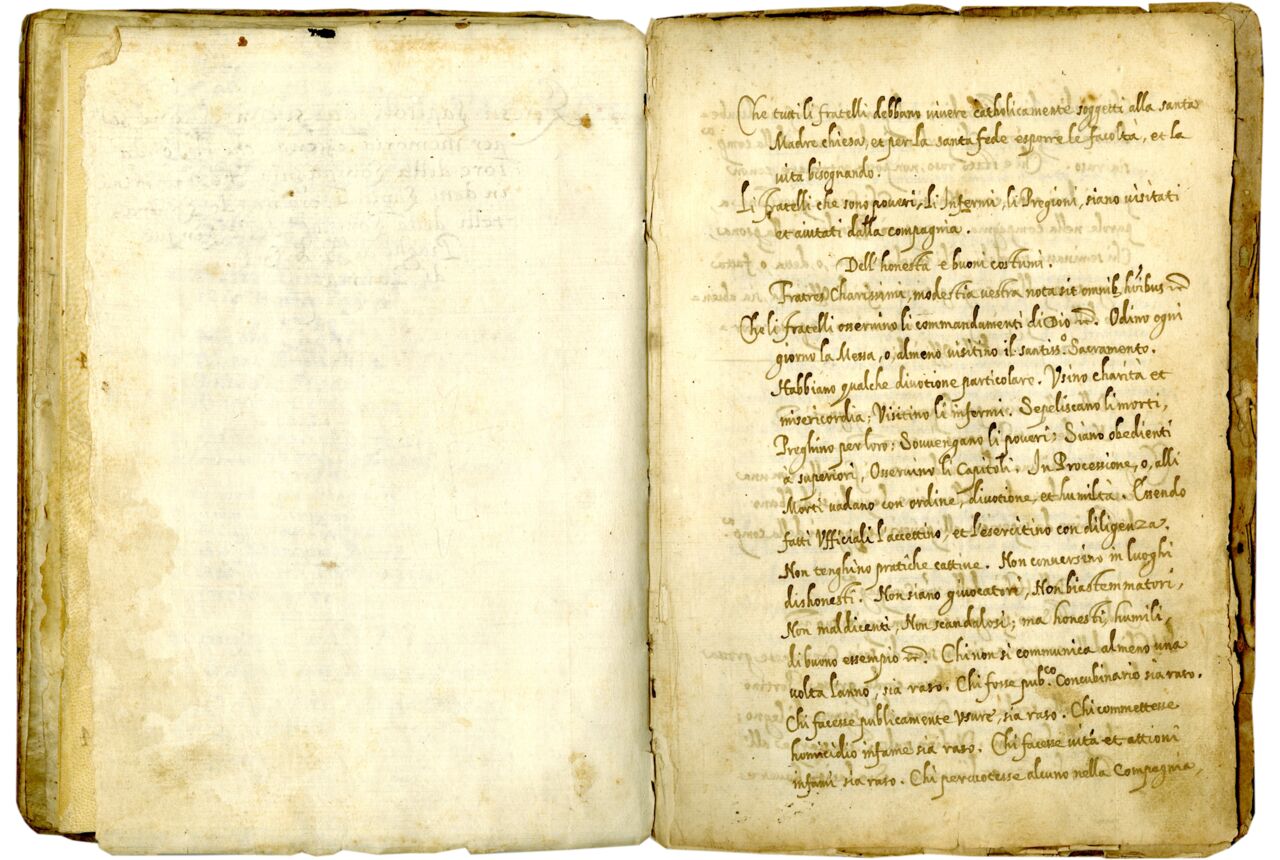 Che tutti li fratelli debbano vivere catholicamente soggetti alla santa
Madre chiesa, et per la santa fede esporre le facoltà, et la
vita bisognando.
Li Fratelli che sono poveri, li Infermi, li Pregioni, siano visitati
et aiutati dalla compagnia.
Dell'honestà e buoni costumi.
Fratres Charissimi, modestia vestra nota sit omnib. hoībus
Che li fratelli osservino li commandamenti di Dio. Odino ogni
giorno la Messa, o, almeno visitino il santiss.o Sacramento.
Habbiano qualche divotione particolare. Usino charità et
misericordia; Visitino li infermi. Sepeliscano li morti,
Preghino per loro: Sovvengano li poveri: Siano obedienti
a superiori, Osservino li Capitoli. In Processione, o, alli
Morti vadano con ordine, divotione, et humiltà. Essendo
fatti Ufficiali l'accettino, et l'esercitino con diligenza.
Non tenghino pratiche cattive. Non conversino in luoghi
dishonesti. Non siano giuocatori, Non biastemmatori,
Non maldicenti, Non scandalosi; ma honesti, humili,
di buono essempio. Chi non si communica almeno una
volta l'anno, sia raso. Chi fosse pub.co Concubinario sia raso.
Chi facesse publicamente Usure, sia raso. Chi commettesse
homicidio infame sia raso. Chi facesse vita et attioni
infami sia raso. Chi percuotesse alcuno nella Compagnia,